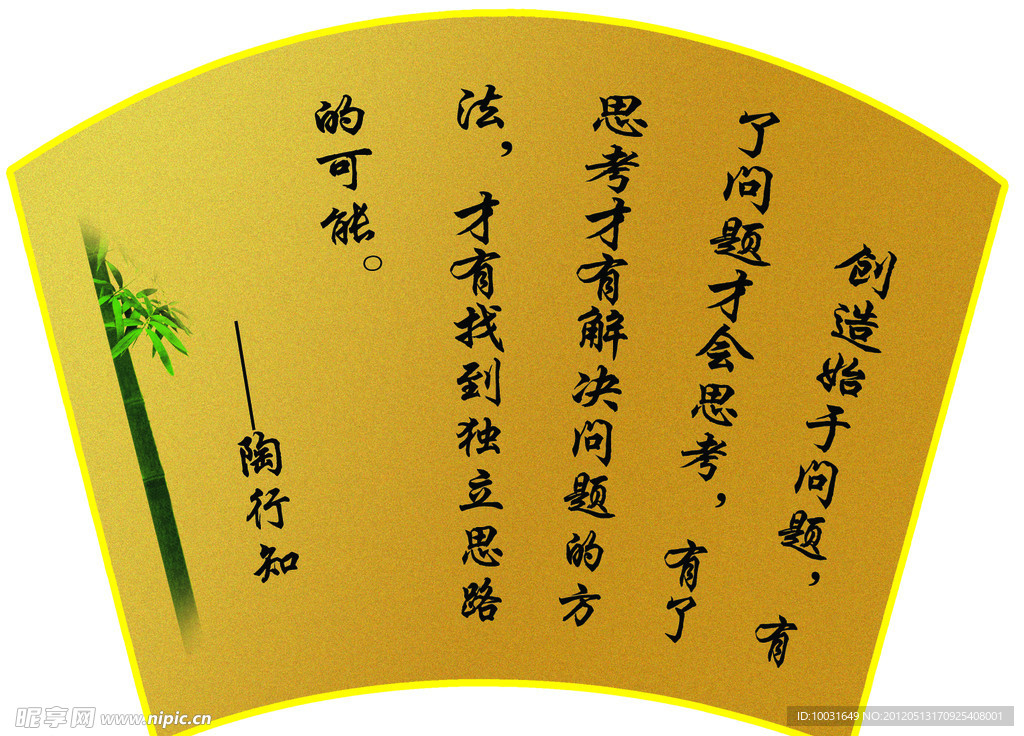 创造始于问题，有
了问题才会思考，有了
思考才有解决问题的方
法，才有找到独立思路
的可能。
——陶行知
昵享网 www.nipic.cn
ID:10031649 NO:20120513170925408001